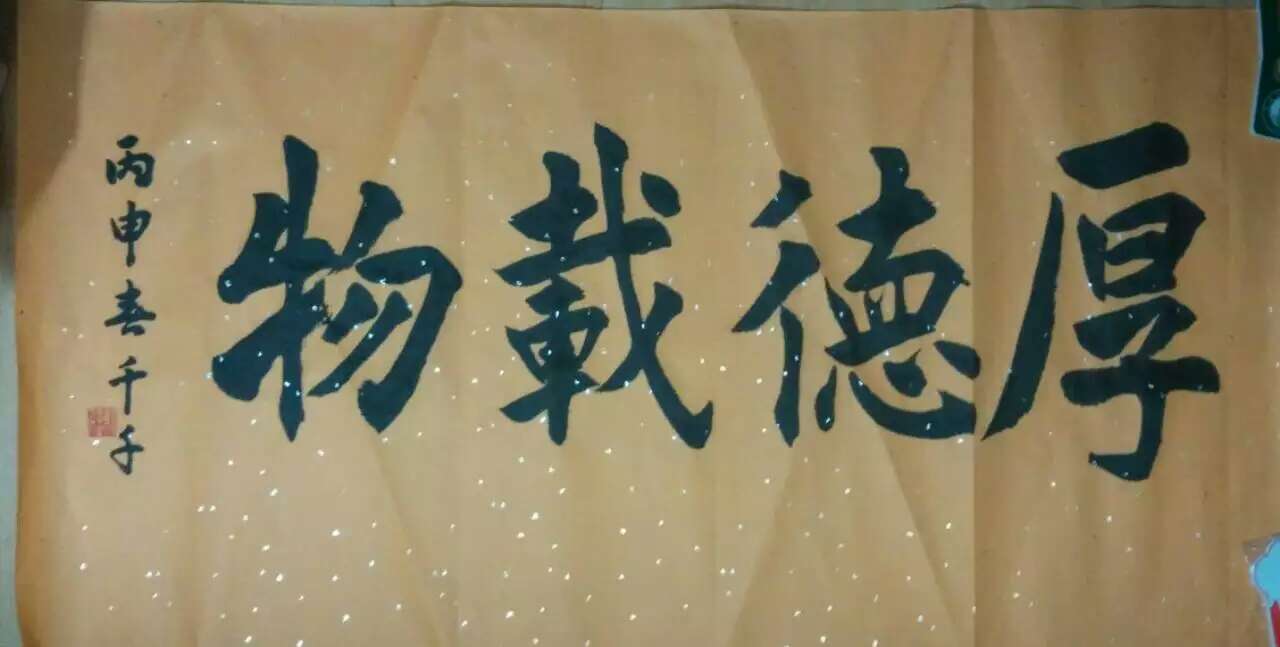 厚德載物
丙申春千千